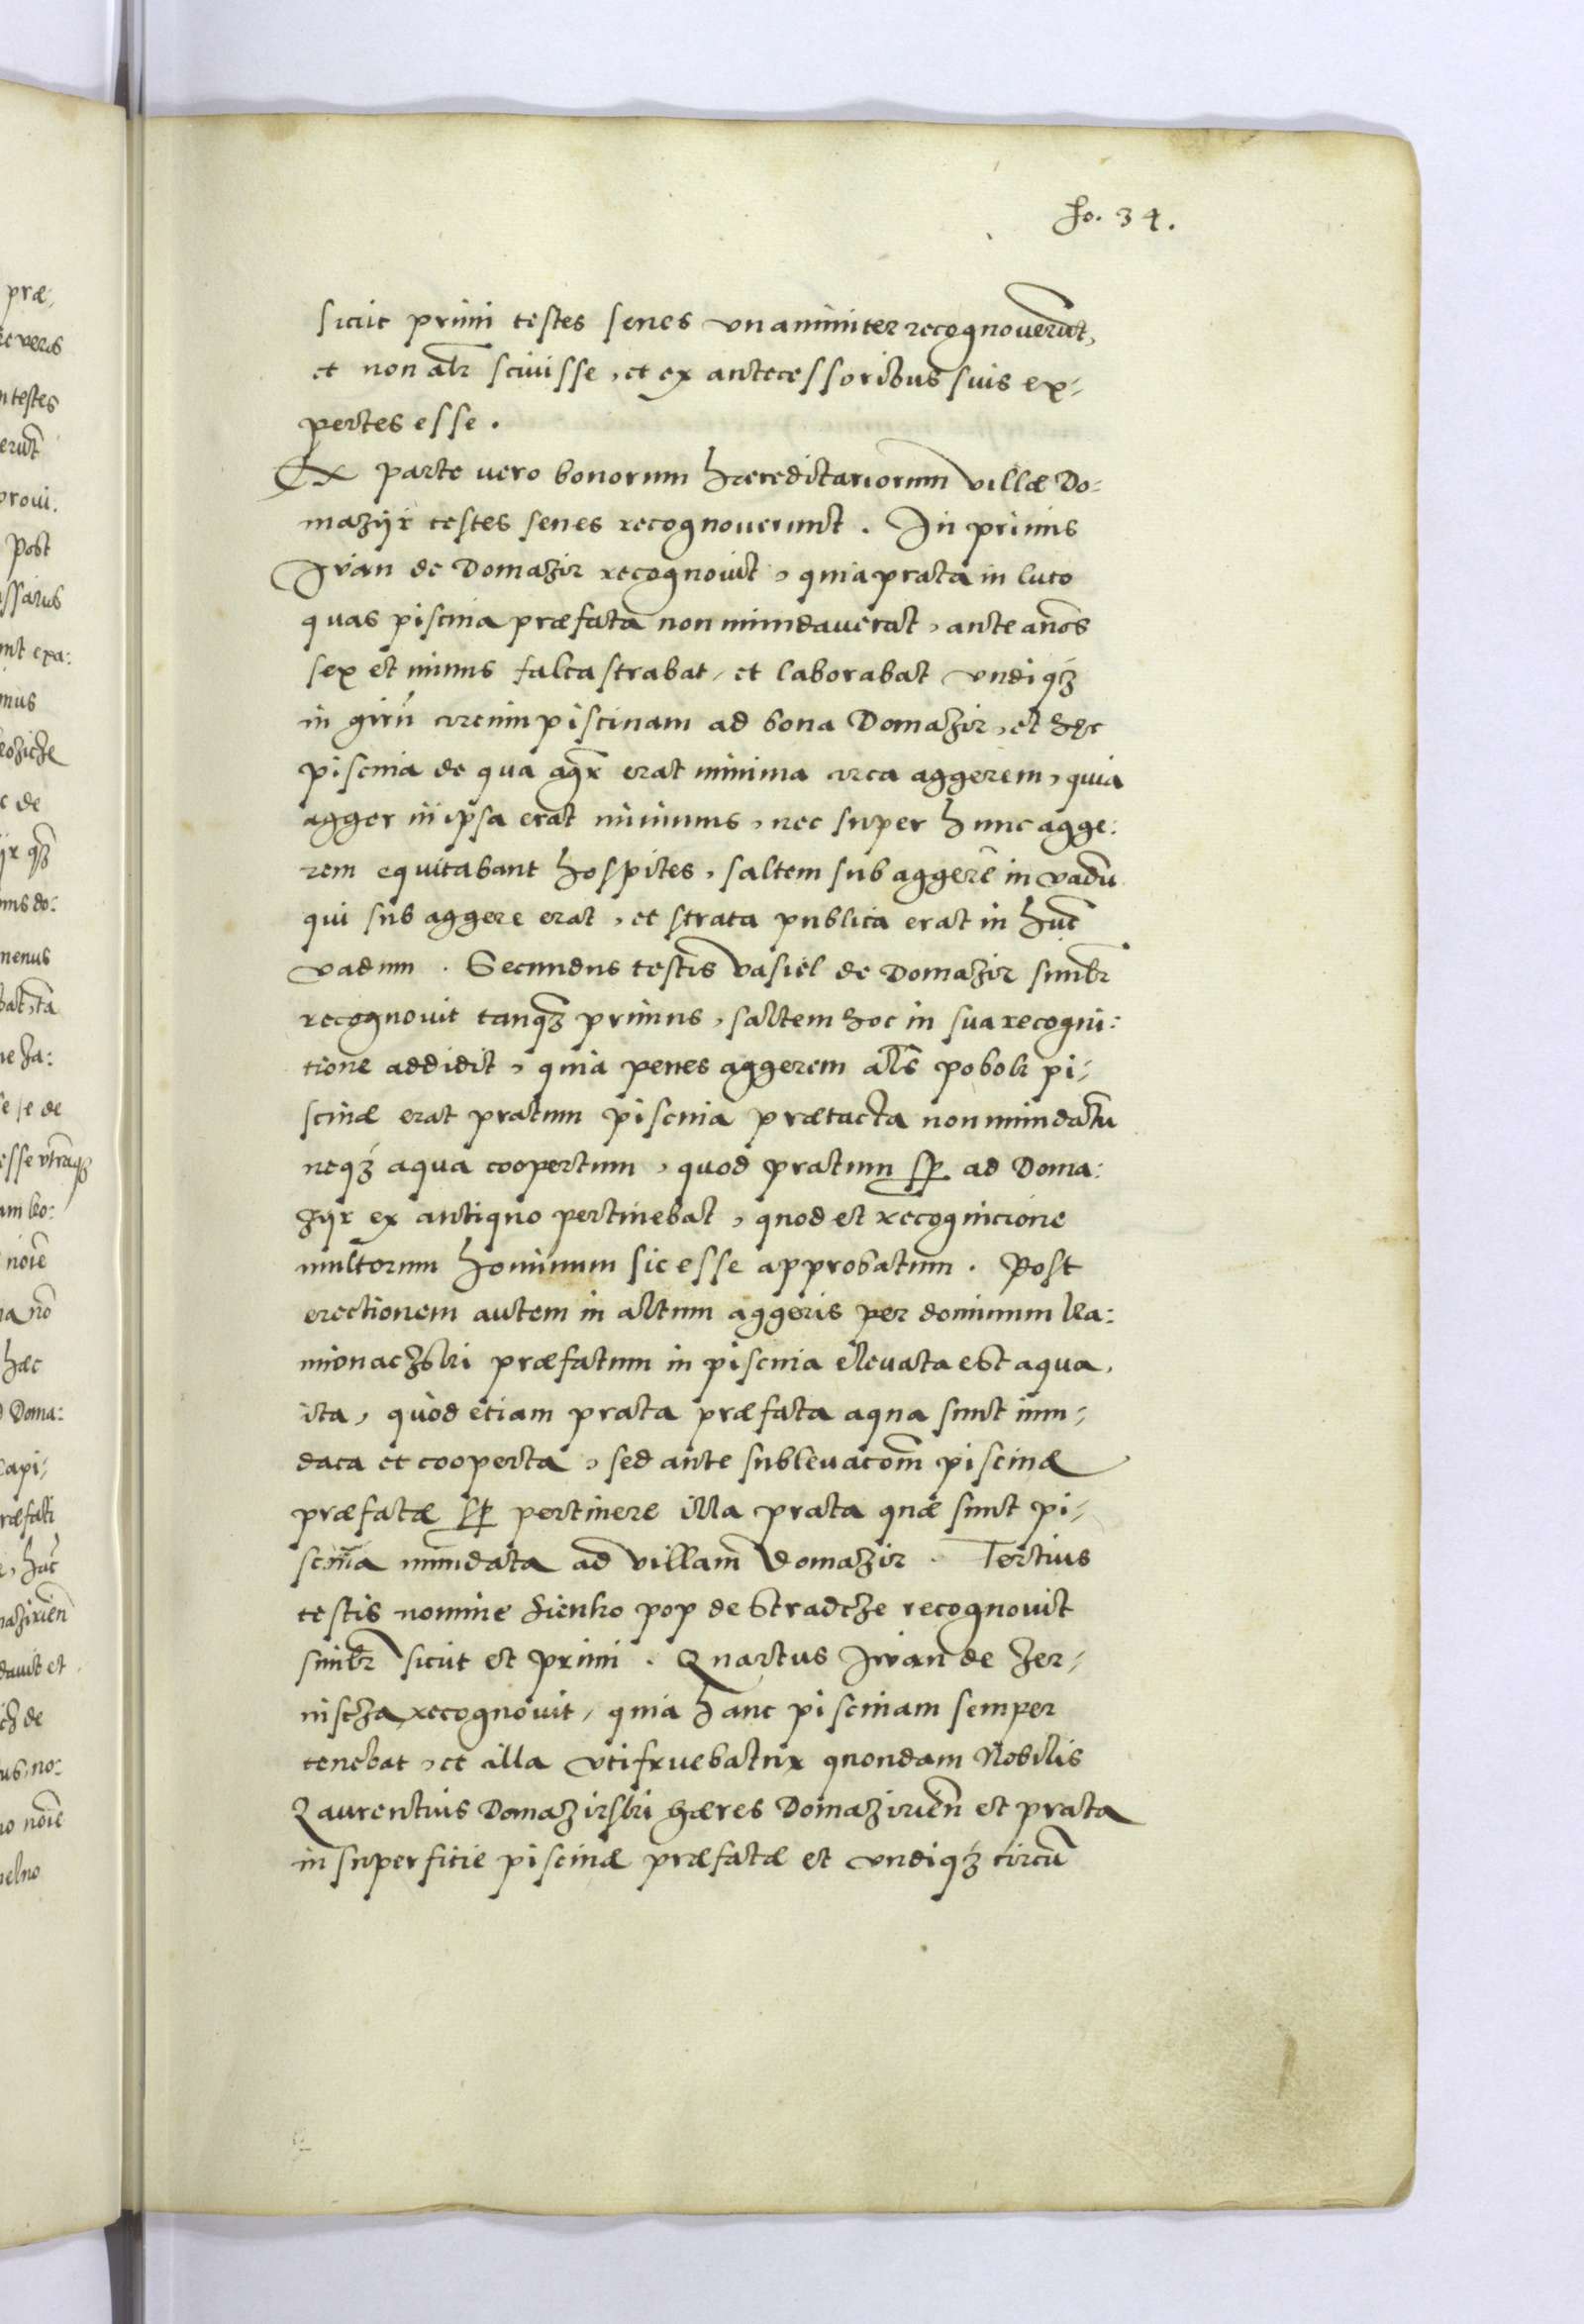 fo. 34.
sicut primi testes senes vnanimiter recognoverūt,
et non alr̄ scivisse, et ex antecessoribus suis ex-
pertes esse.
Ex parte vero bonorum hæreditariorum villæ Do:
mazijr testes senes recognoverunt. In primis
Ivan de Domazir recognovit, quia prata in luto
quas piscina præfata non inundaverat, ante an̄os
sex et minus falcastrabat, et laborabat vndiqȝ
in girū circum piscinam ad bona Domazir, et hęc
piscina de qua agr̄ erat minima circa aggerem, quia
agger in ipsa erat minimus, nec super hunc agge:
rem equitabant hospites, saltem sub aggerē in vadū
qui sub aggere erat, et strata publica erat in hūc
vadum. Secundus testis Vasiel de Domazir simlr̄
recognovit tanqȝ primus, saltem hoc in sua recogni:
tione addidit, quia penes aggerem al̄s pobok pi-
scinæ erat pratum piscina prætacta non inundatū
neqȝ aqua coopertum, quod pratum sp̄ ad Doma:
zijr ex antiquo pertinebat, quod et recognicione
multorum hominum sic esse approbatum. Post
erectionem autem in altum aggeris per dominum ka:
mionaczski præfatum in piscina elevata est aqua,
ita, quod etiam prata præfata aqua sunt inun-
data et cooperta, sed ante sublevacōm piscinæ
præfatæ sp̄ pertinere illa prata quæ sunt pi-
scina inundata ad villam Domazir. Tertius
testis nomine Sienko pop de Stradcze recognovit
simlr̄ sicut et primi. Quartus Iwan de Zer-
niscza recognovit, quia hanc piscinam semper
tenebat, et illa vtifruebatur quondam Nobilis
Laurentius Domazirski hæres Domazirien̄ et prata
in superficie piscinæ præfatæ et vndiqȝ circū